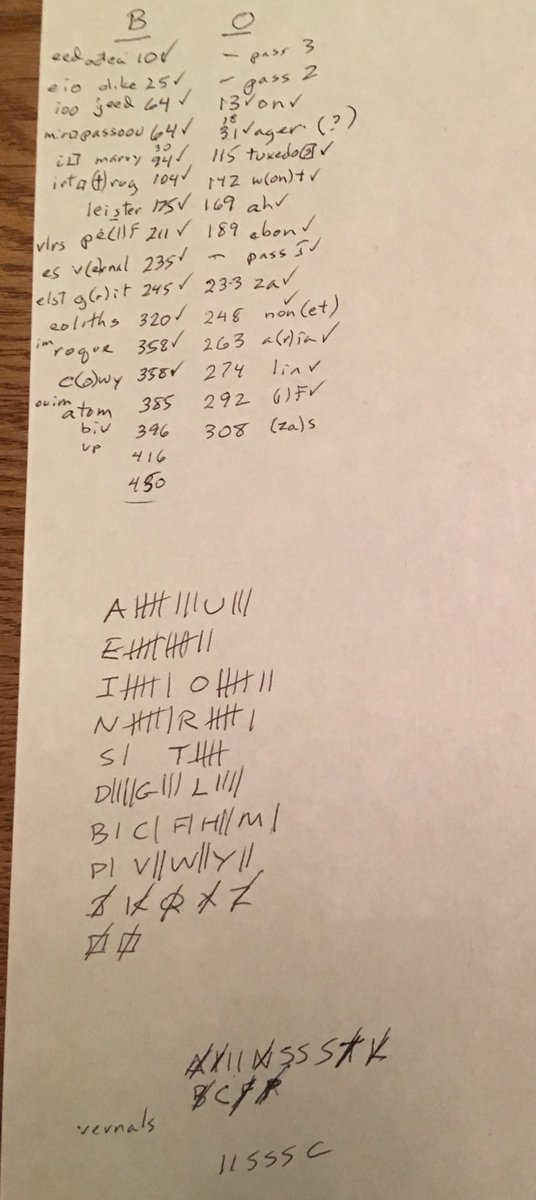 B O
10✓ – pass 3
eio dike 25✓ – pass 2
ioo jeed 64✓ 13✓ on✓
64✓ 18 31✓ ager (?)
marvy 30 94✓ 115 tuxedo ✓
104✓ 142 w(on)t✓
leister 175✓ 169 ah✓
vlrs pe(l)f 211✓ 189 ebon✓
es v(e)rnal 235✓ – pass 5
g(r)it 245✓ 233 za✓
eoliths 320✓ 248 non(et) ✓
im roque 358✓ 263 a(r)ia✓
c(o)wy 358✓ 274 lin✓
ouim atom 385 292 (i)f✓
biu 396 308 (za)s
up 416
450
A |||| ||| U |||
E |||| |||| ||
I |||| | O |||| ||
N |||| | R |||| |
S | T ||||
D |||| G ||| L ||||
B | C | F | H || M |
P | V || W || Y ||
J K Q X Z
I I N S S S
B C
vernals
I I S S S C